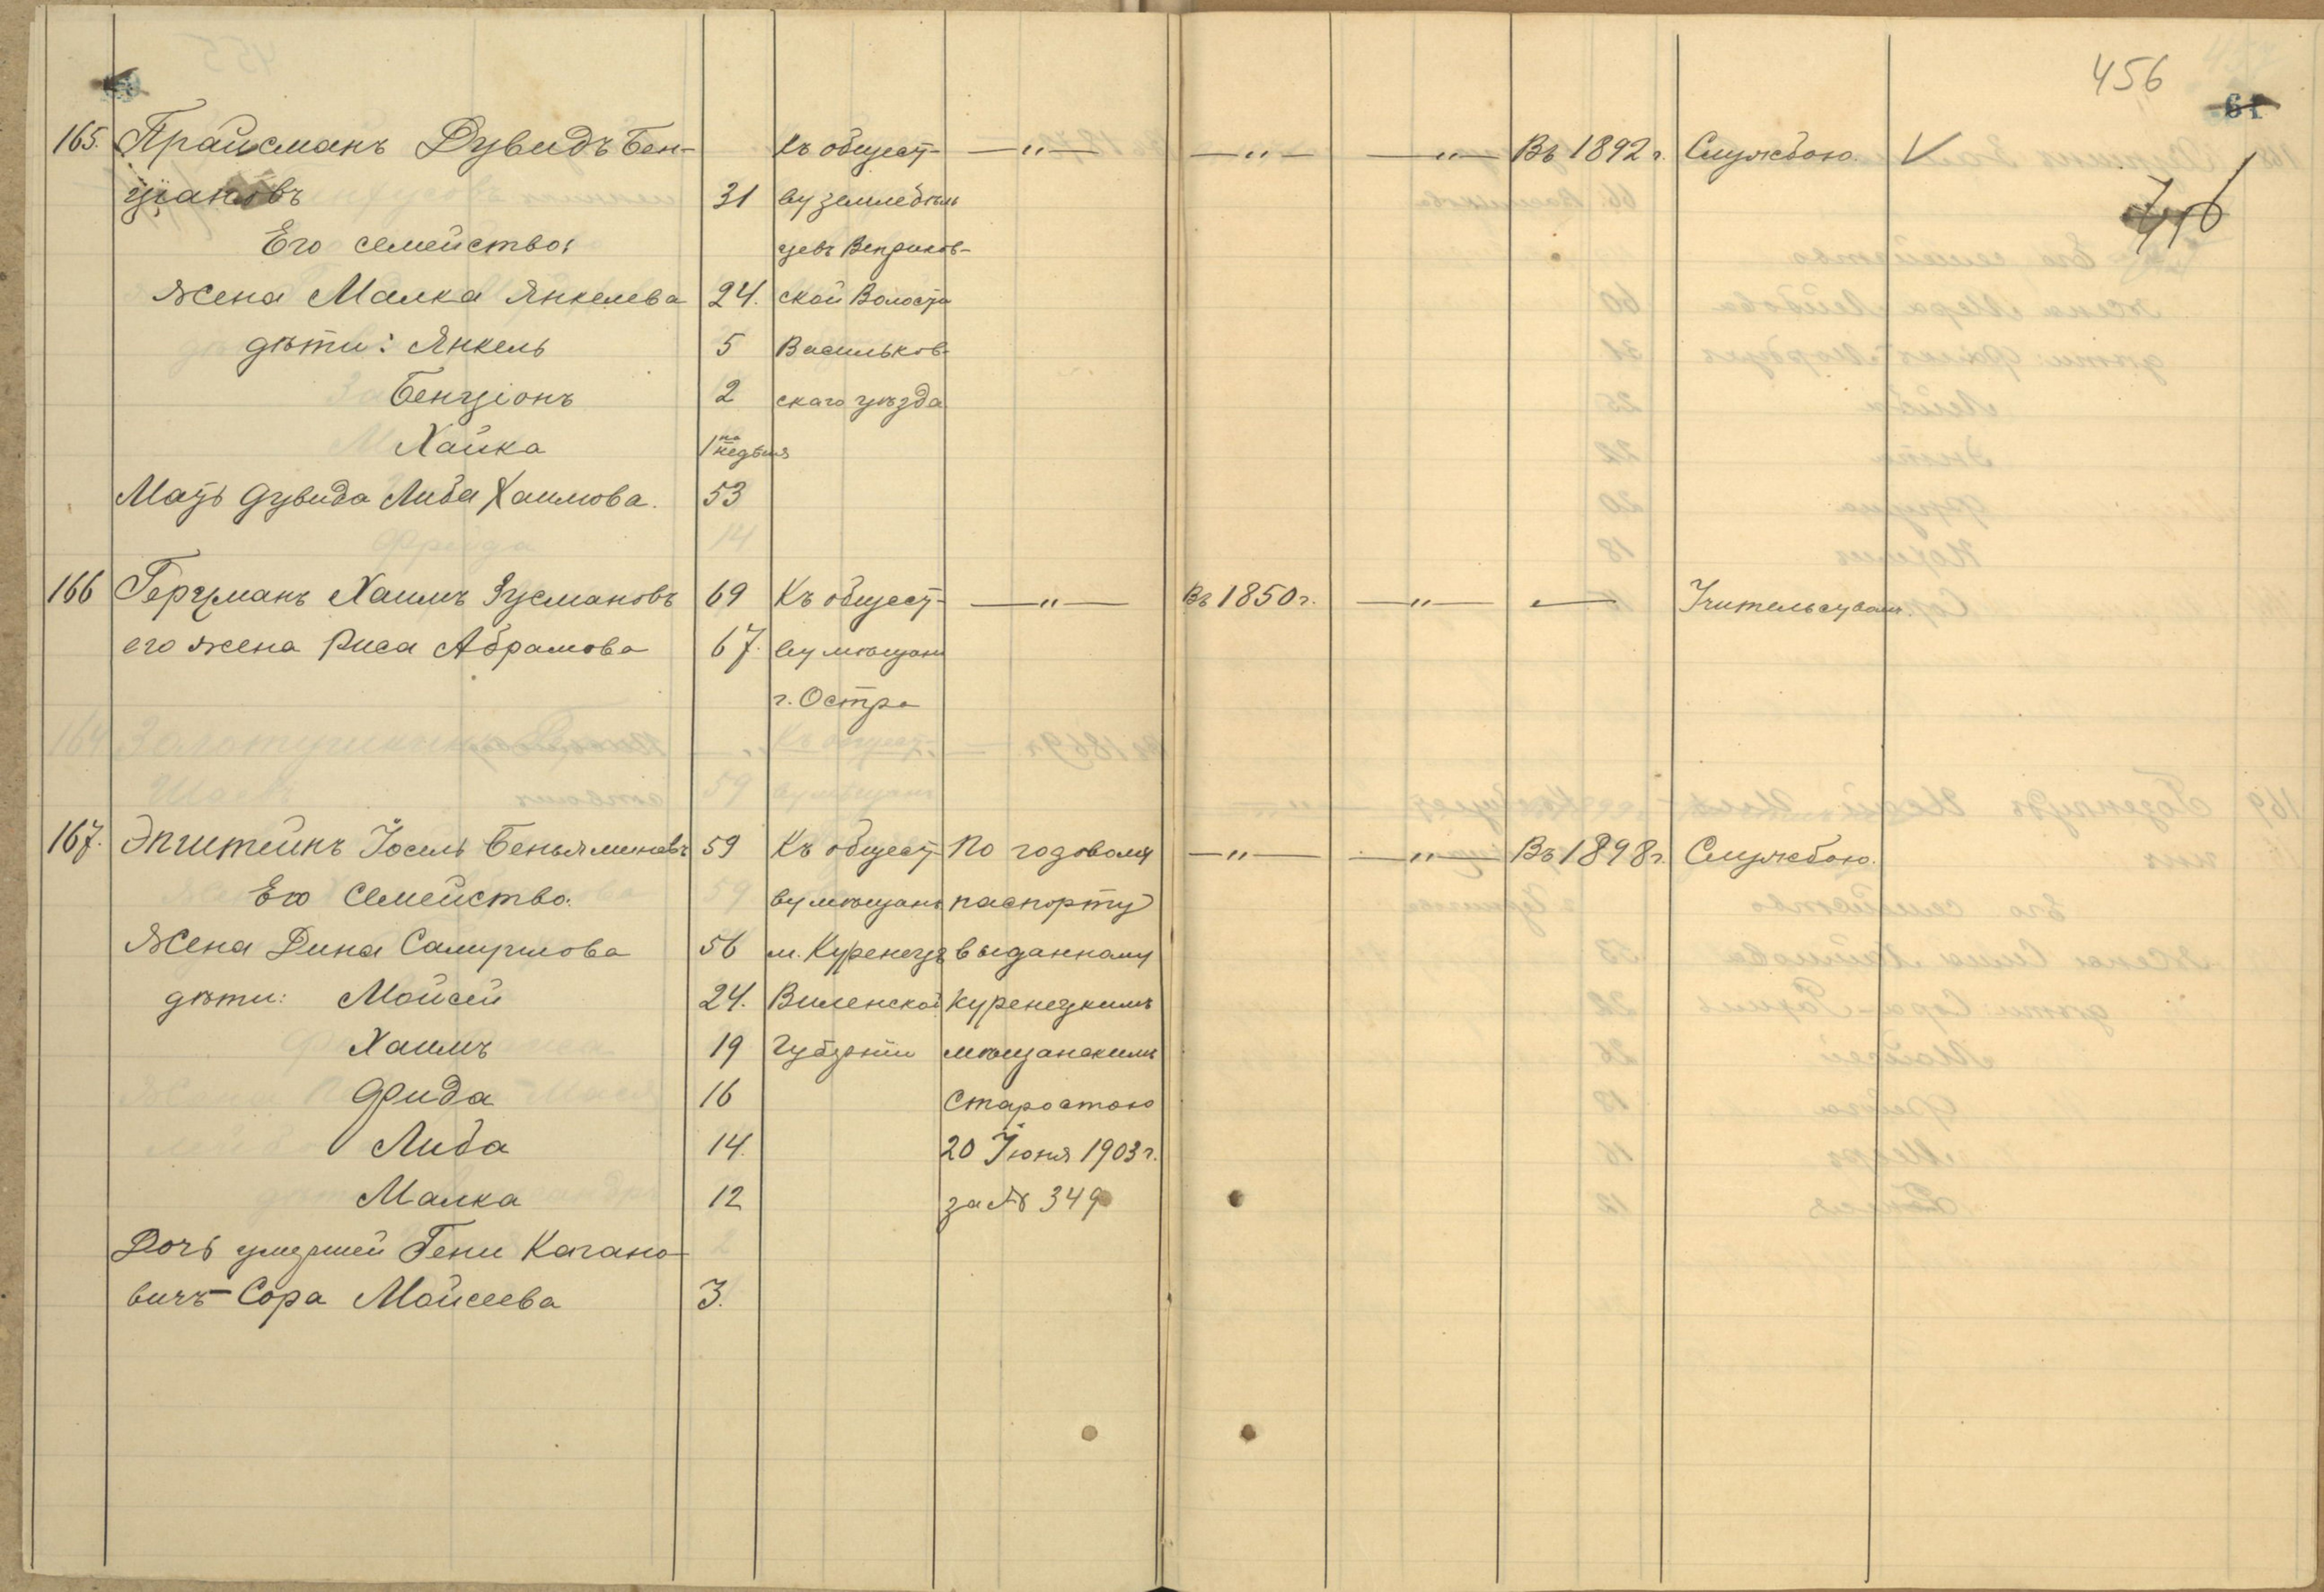 456
61
165. Прайсманъ Дувидъ Бен- Къ общест- —"— —"— —"— Въ 1892 г. Службою. V
ціановъ 31 ву земледѣль
Его семейство: цевъ Веприков-
жена Малка Янкелева 24. ской Волости
дѣти: Янкель 5 Васильков-
Бенціонъ 2 скаго уѣзда
Хайка 1на недѣля
Мать Дувида Либа Хаимова. 53
166 Герцманъ Хаимъ Зусмановъ 69 Къ общест- —"— Въ 1850 г. —"— — Учительствомъ.
его жена Риса Абрамова 67. ву мѣщанъ
г. Остра
167. Эпштейнъ Іосель Беньяминовъ 59 Къ общест- По годовому —"— —"— Въ 1898 г. Службою.
Его Семейство. ву мѣщанъ паспорту
Жена Дина Самуилова 56 м. Куренецъ выданному
дѣти: Мойсей 24. Виленской Куренецкимъ
Хаимъ 19 Губерніи мѣщанскимъ
Фрида 16 Старостою
Либа 14. 20 Іюня 1903 г.
Малка 12 за № 349
Дочь умершей Гени Кагано-
вичъ - Сора Мойсеева 3.